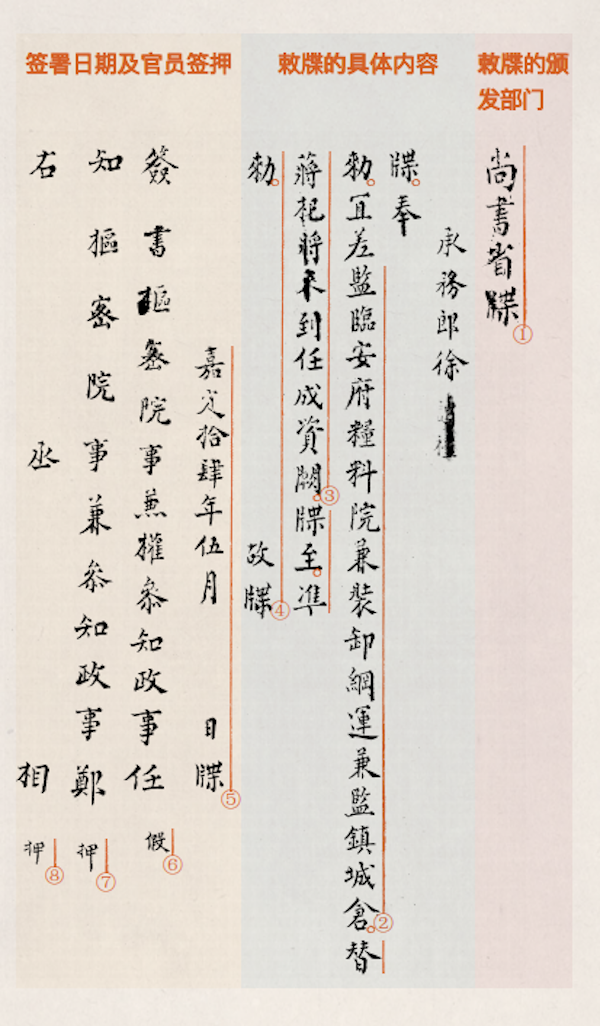 敕牒的颁
发部门
敕牒的具体内容
签署日期及官员签押
尚書省牒①
承務郎徐
牒。奉
勑。宜差監臨安府糧料院兼裝卸綱運兼監鎮城倉。②替
蔣杞將來到任成資闕。③牒至。準
勑。 故牒④
嘉定拾肆年伍月 日牒⑤
簽書樞密院事兼權參知政事任 假⑥
知樞密院事兼參知政事鄭 押⑦
右丞相 押⑧